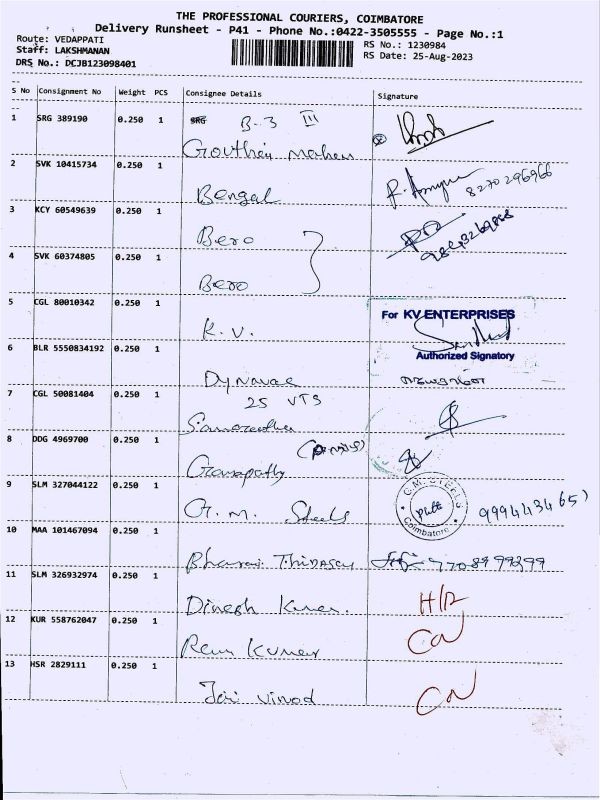 THE PROFESSIONAL COURIERS, COIMBATORE
Delivery Runsheet - P41 - Phone No.:0422-3505555 - Page No.:1
Route: VEDAPPATI
Staff: LAKSHMANAN
DRS No.: DCJB123098401
RS No.: 1230984
RS Date: 25-Aug-2023
S No Consignment No Weight PCS Consignee Details Signature
1 SRG 389190 0.250 1 SRG B-3 III
2 SVK 10415734 0.250 1
Bengal 8270296966
3 KCY 60549639 0.250 1
Bero
4 SVK 60374805 0.250 1
Bero
5 CGL 80010342 0.250 1
K.V.
For KV ENTERPRISES
Authorized Signatory
6 BLR 5550834192 0.250 1
7 CGL 50081404 0.250 1 25 VTS
8 DDG 4969700 0.250 1
Ganapathy
9 SLM 327044122 0.250 1
G.M. Steels
G.M. STEELS
Coimbatore
10 MAA 101467094 0.250 1
11 SLM 326932974 0.250 1
Dinesh Kumar.
12 KUR 558762047 0.250 1
Ram Kumar
13 HSR 2829111 0.250 1
Jai vinod